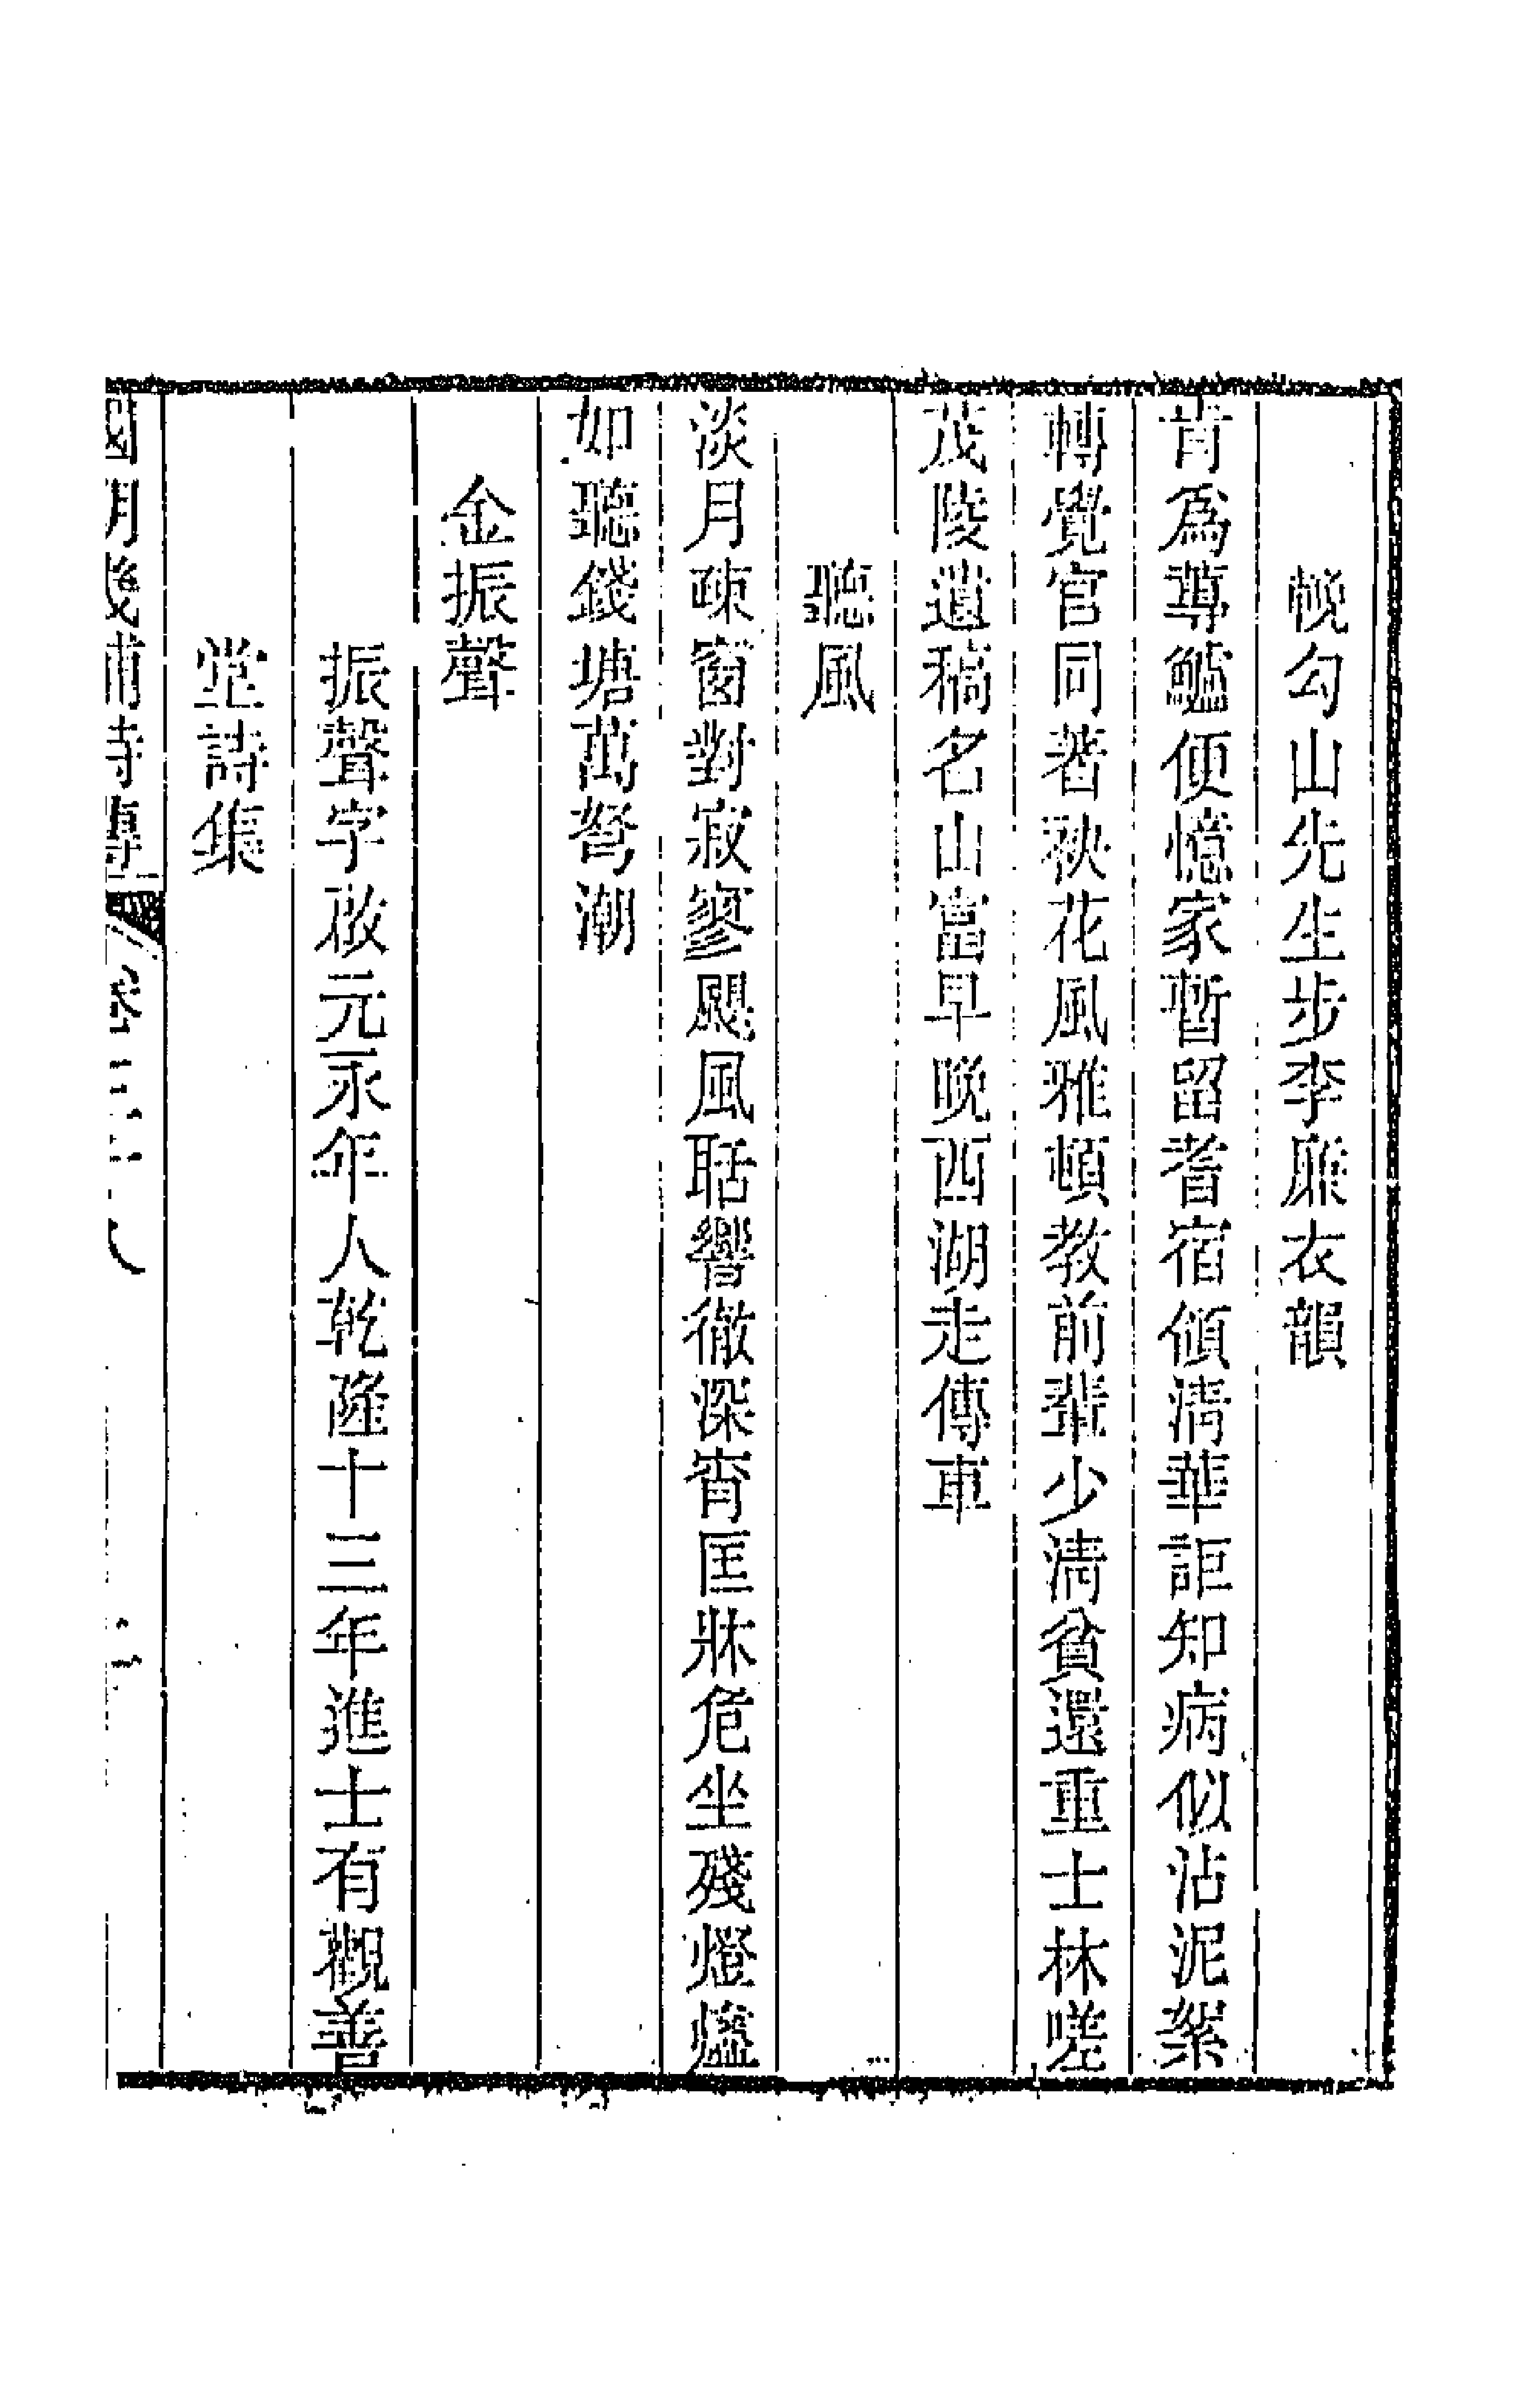 輓勾山先生步李廉衣韻
肯爲蓴鱸便憶家暫留耆宿傾淸華詎知病似沾泥絮
轉覺官同著秧花風雅頓教前輩少淸貧還重士林嗟
茂陵遺稿名山富早晚西湖走傳車
聽風
淡月疎窗對寂寥颶風聒響徹深宵匡牀危坐殘燈燼
如聽錢塘萬弩潮
金振聲
振聲字啟元永年人乾隆十三年進士有觀善
堂詩集
國朝畿輔詩傳 卷三十八